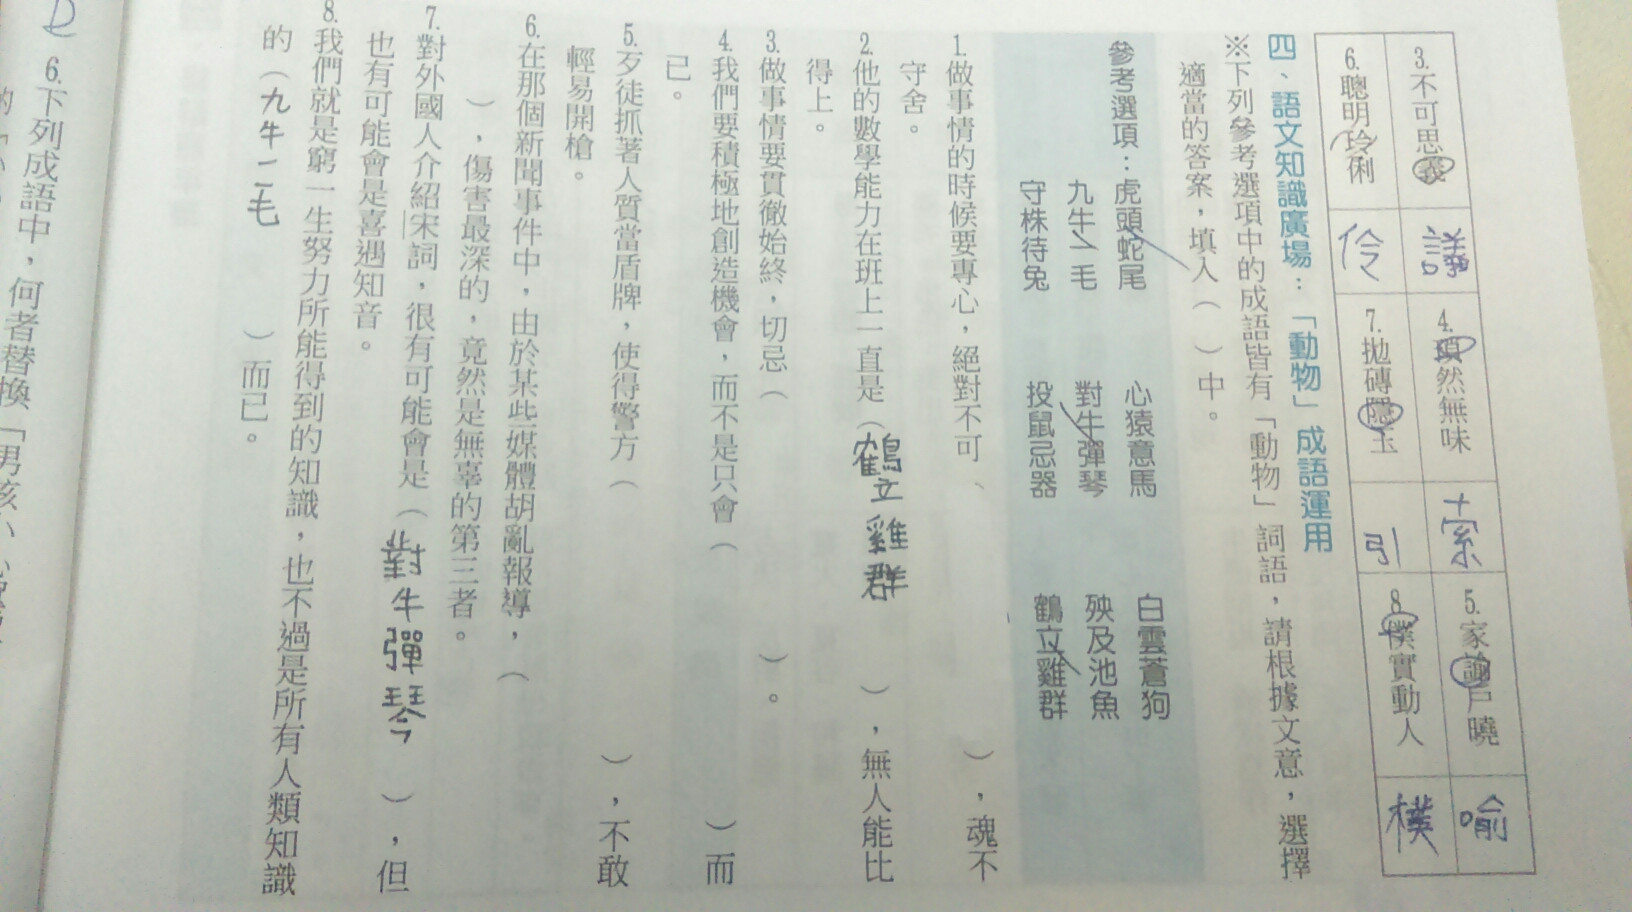 3.不可思義
議
4.瑣然無味
索
5.家諭戶曉
喻
6.聰明玲俐
伶
7.拋磚隱玉
引
8.樸實動人
樸
四、語文知識廣場:「動物」成語運用
※下列參考選項中的成語皆有「動物」詞語,請根據文意,選擇
適當的答案,填入( )中。
參考選項:虎頭蛇尾 心猿意馬 白雲蒼狗
九牛一毛 對牛彈琴 殃及池魚
守株待兔 投鼠忌器 鶴立雞群
1.做事情的時候要專心,絕對不可( ),魂不
守舍。
2.他的數學能力在班上一直是(鶴立雞群),無人能比
得上。
3.做事情要貫徹始終,切忌( )。
4.我們要積極地創造機會,而不是只會( )而
已。
5.歹徒抓著人質當盾牌,使得警方( ),不敢
輕易開槍。
6.在那個新聞事件中,由於某些媒體胡亂報導,(
),傷害最深的,竟然是無辜的第三者。
7.對外國人介紹宋詞,很有可能會是(對牛彈琴),但
也有可能會是喜遇知音。
8.我們就是窮一生努力所能得到的知識,也不過是所有人類知識
的(九牛一毛)而已。
D
6.下列成語中,何者替換「男